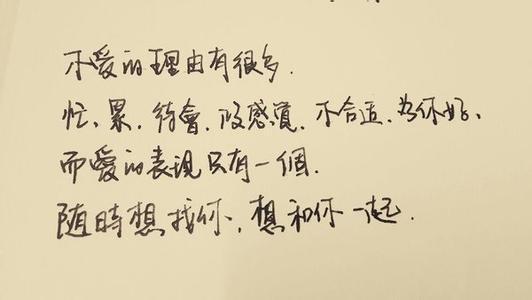 不愛的理由有很多.
忙、累.待會.沒感覺.不合适.為你好、
而愛的表現只有一個.
随時想找你,想和你一起.